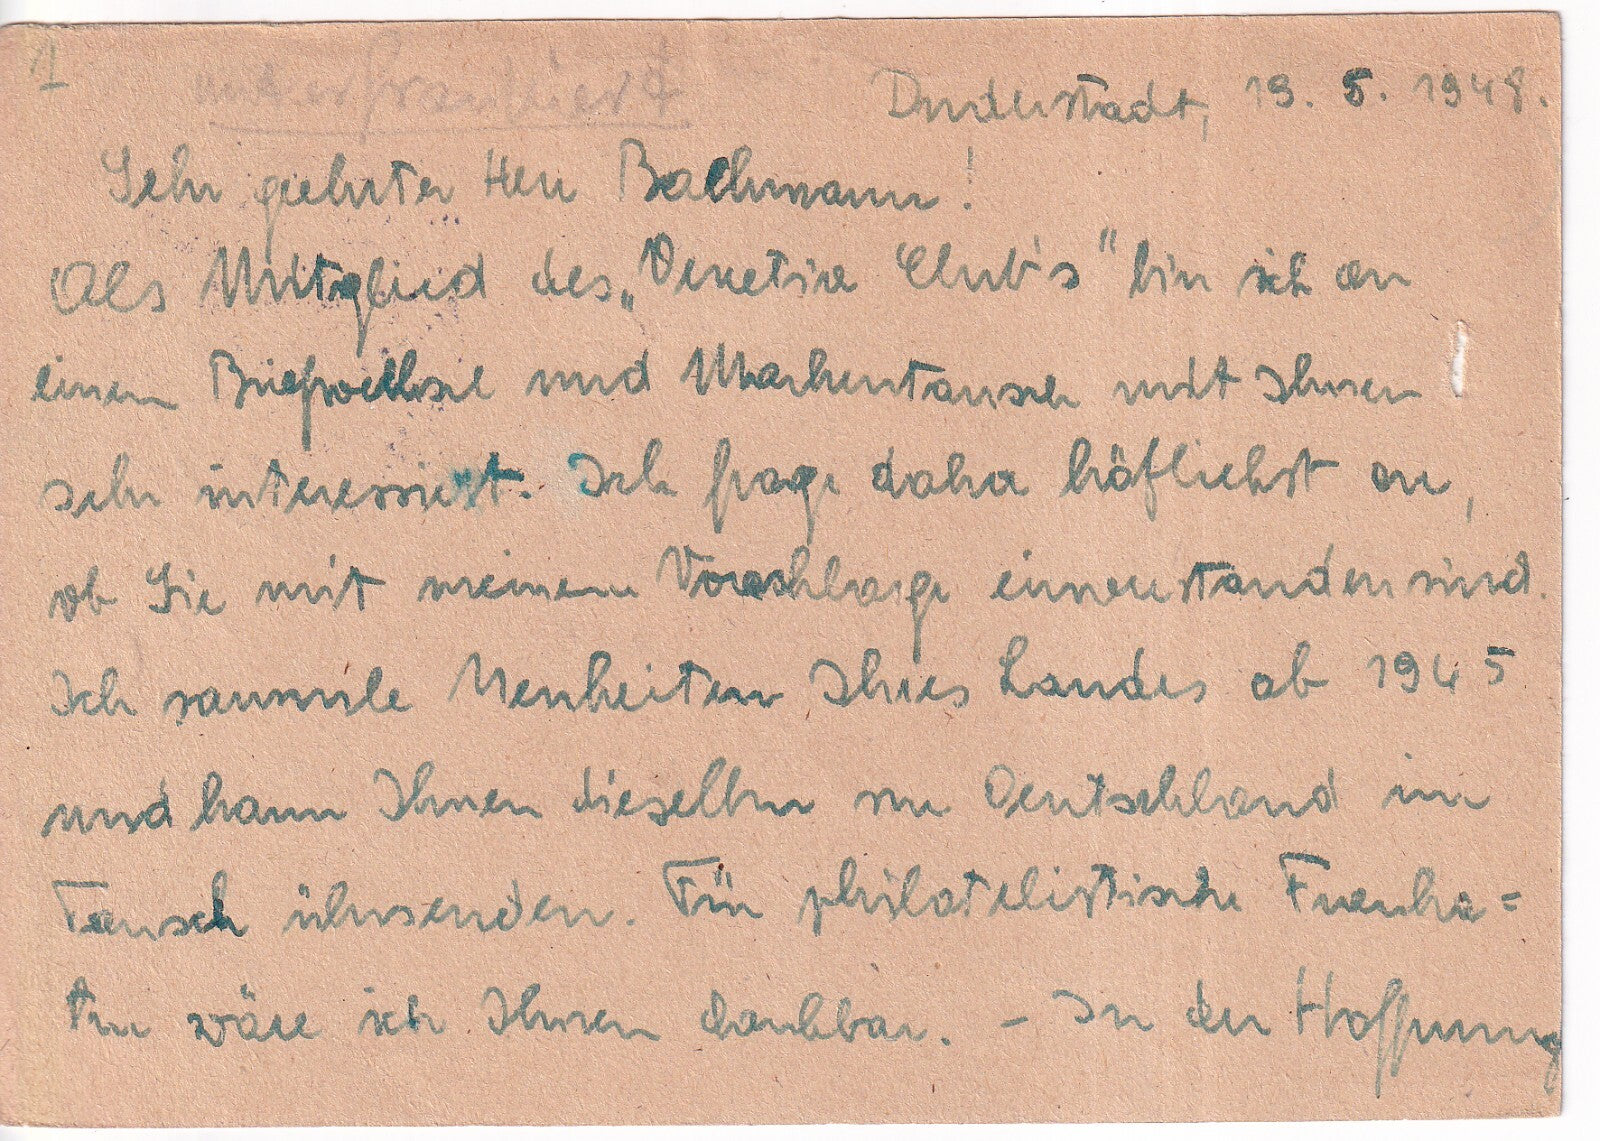 1
unterfrankiert
Duderstadt, 19. 5. 1948.
Sehr geehrter Herr Bachmann!
Als Mitglied des „Venetia Club's" bin ich an
einem Briefwechsel und Markentausch mit Ihnen
sehr interessiert. Ich frage daher höflichst an,
ob Sie mit meinem Vorschlage einverstanden sind.
Ich sammle Neuheiten Ihres Landes ab 1945
und kann Ihnen dieselben von Deutschland im
Tausch übersenden. Für philatelistische Franka=
tur wäre ich Ihnen dankbar. – In der Hoffnung